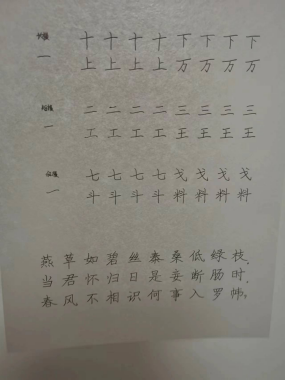 长横 十 十 十 十 下 下 下 下
一 上 上 上 上 万 万 万 万
短横 二 二 二 二 三 三 三 三
一 工 工 工 工 王 王 王 王
七 七 七 七 戈 戈 戈 戈
一 斗 斗 斗 斗 料 料 料 料
燕 草 如 碧 丝 秦 桑 低 绿 枝.
当 君 怀 归 日 是 妾 断 肠 时.
春 风 不 相 识 何 事 入 罗 帏.